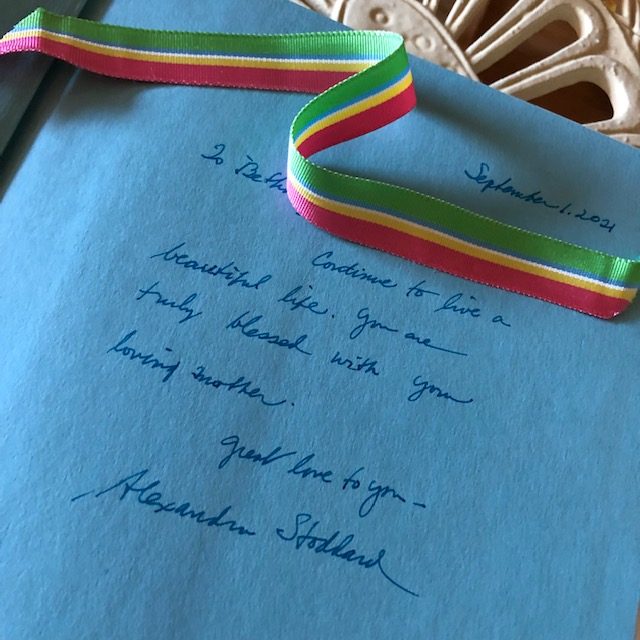 September 1. 2021
To Beth
Continue to live a
beautiful life. You are
truly blessed with your
loving mother.
Great love to you -
Alexandra Stoddard